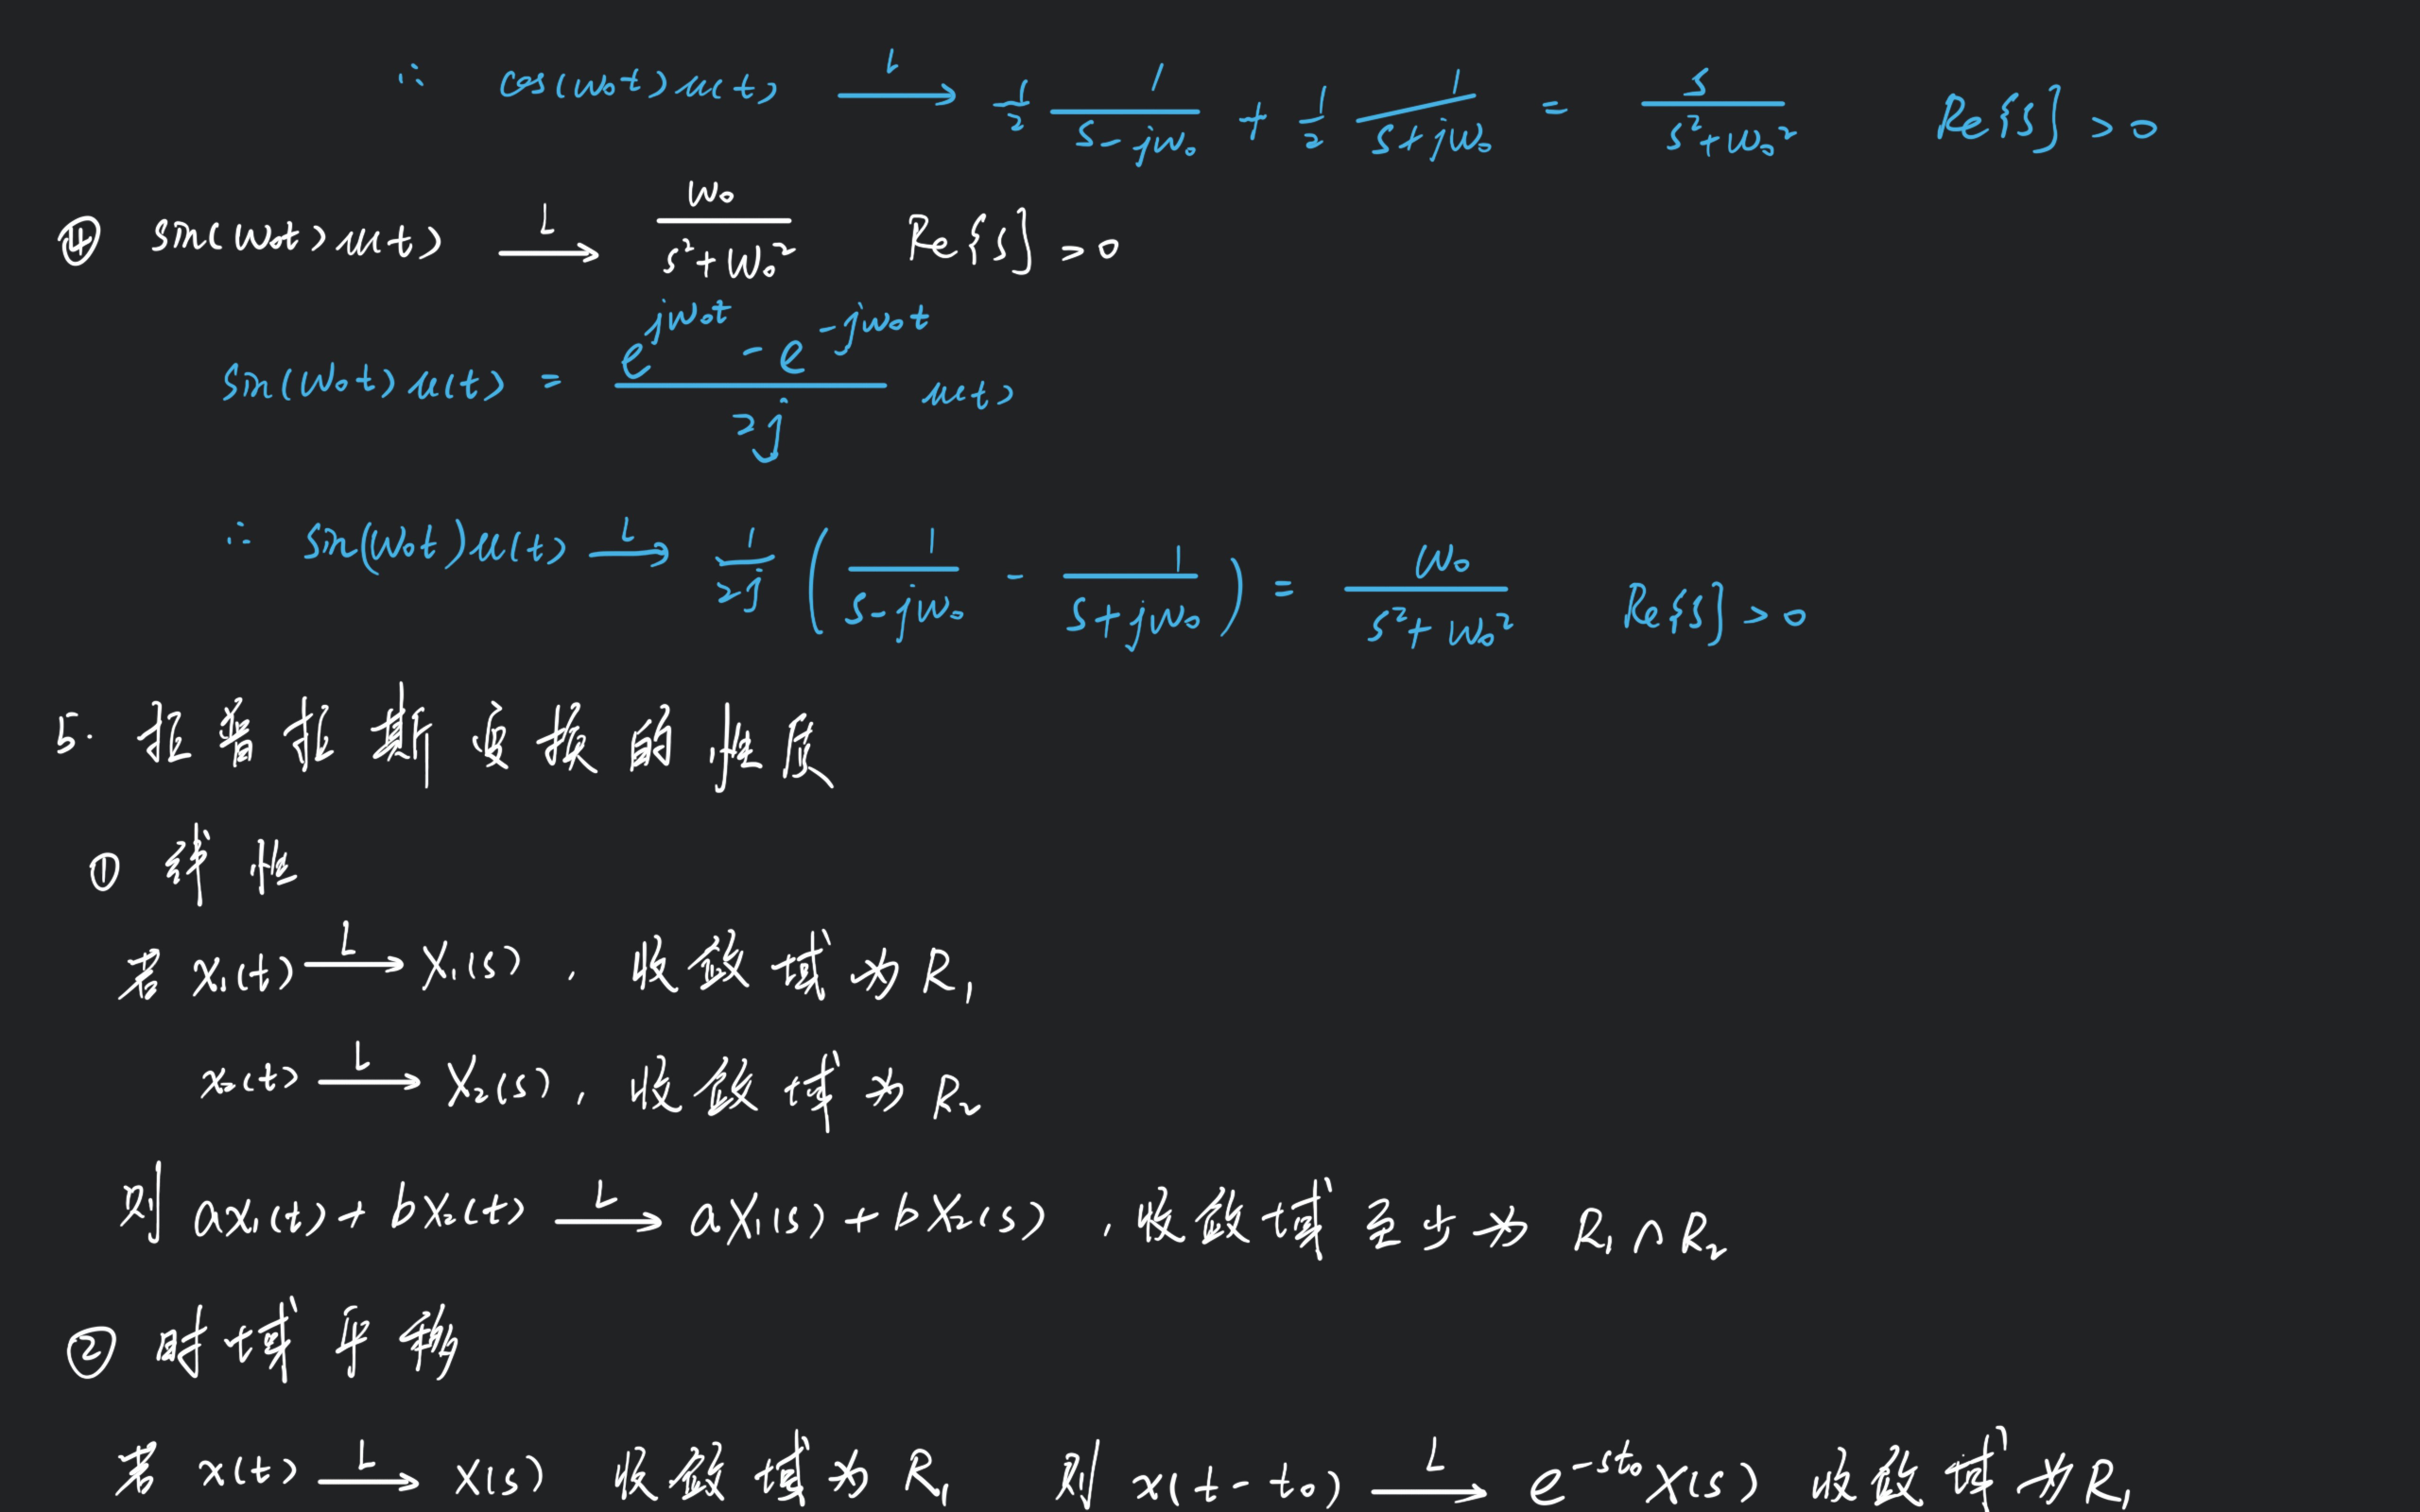 ∴ cos(ω₀t)u(t) —L→ 1/2 1/(s-jω₀) + 1/2 1/(s+jω₀) = s/(s²+ω₀²) Re{s}>0
④ sin(ω₀t)u(t) —L→ ω₀/(s²+ω₀²) Re{s}>0
sin(ω₀t)u(t) = (e^{jω₀t} - e^{-jω₀t})/(2j) u(t)
∴ sin(ω₀t)u(t) —L→ 1/(2j) (1/(s-jω₀) - 1/(s+jω₀)) = ω₀/(s²+ω₀²) Re{s}>0
5. 拉普拉斯变换的性质
① 线性
若 x₁(t) —L→ X₁(s), 收敛域为 R₁
x₂(t) —L→ X₂(s), 收敛域为 R₂
则 ax₁(t)+bx₂(t) —L→ aX₁(s)+bX₂(s), 收敛域至少为 R₁∩R₂
② 时域平移
若 x(t) —L→ X(s) 收敛域为 R₁ 则 x(t-t₀) —L→ e^{-st₀}X(s) 收敛域为R₁